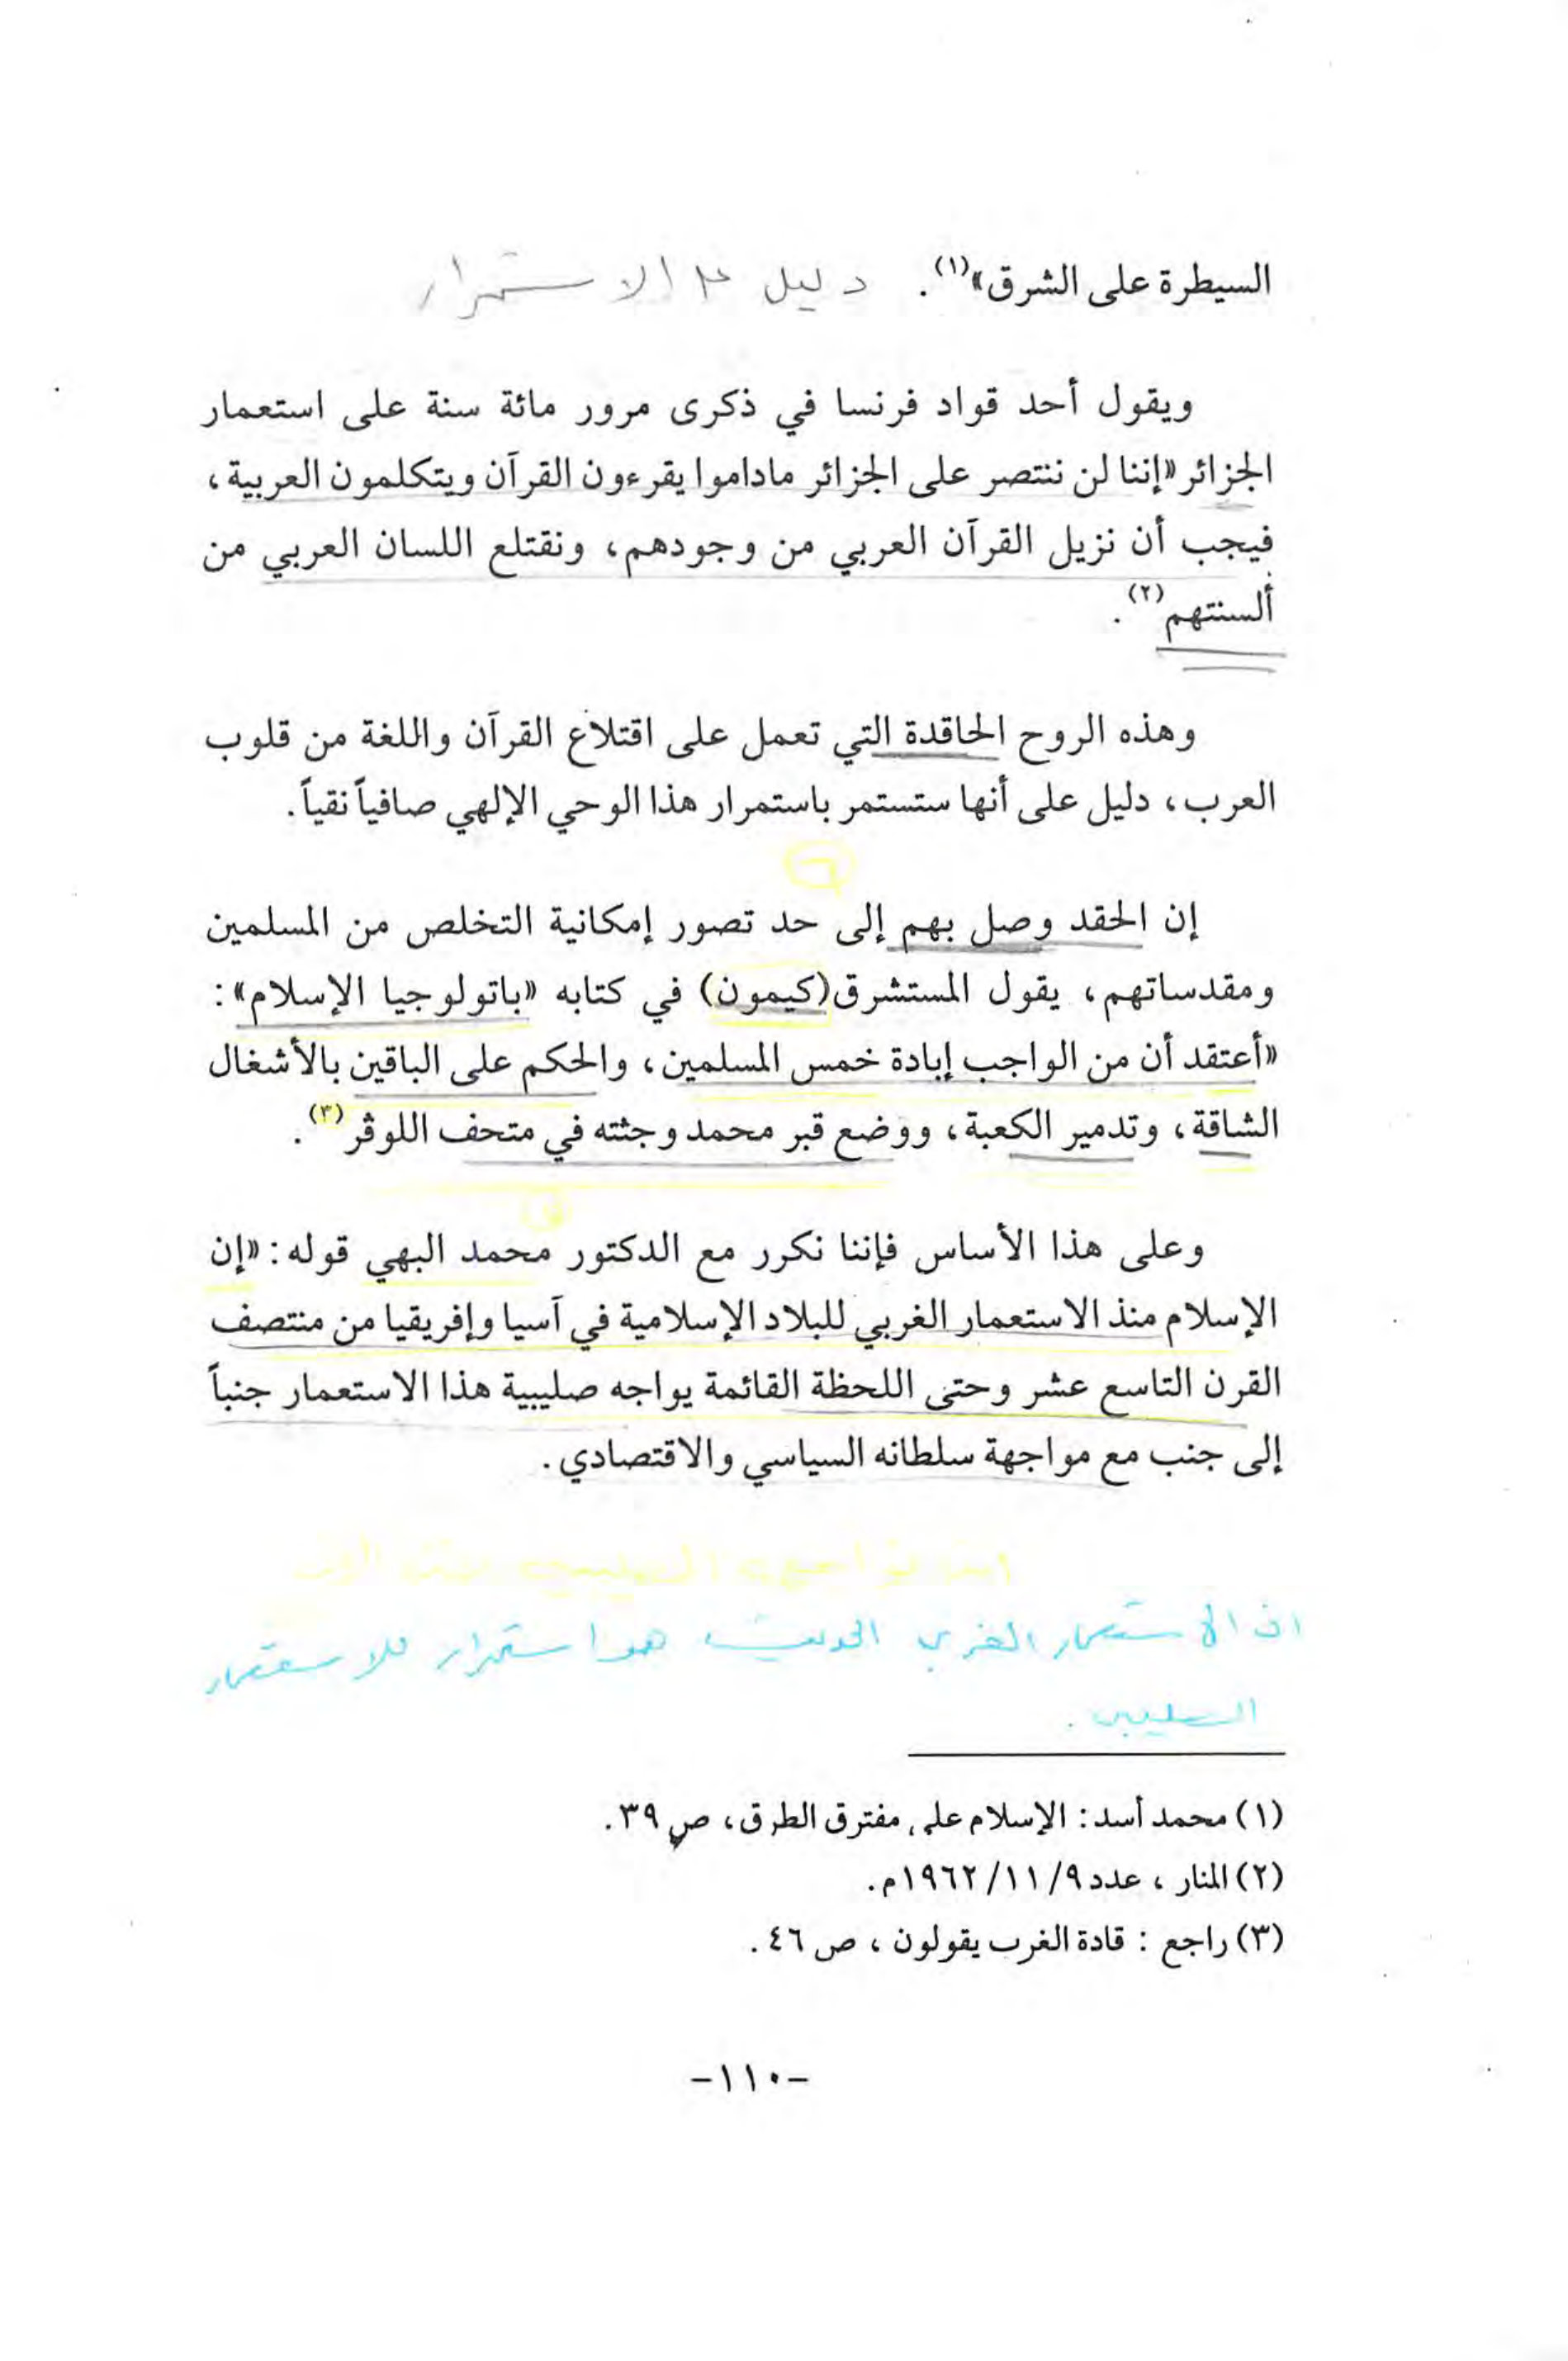 السيطرة على الشرق»(١). دليل على الاستمرار
ويقول أحد قواد فرنسا في ذكرى مرور مائة سنة على استعمار
الجزائر «إننا لن ننتصر على الجزائر ماداموا يقرءون القرآن ويتكلمون العربية،
فيجب أن نزيل القرآن العربي من وجودهم، ونقتلع اللسان العربي من
ألسنتهم(٢).
وهذه الروح الحاقدة التي تعمل على اقتلاع القرآن واللغة من قلوب
العرب، دليل على أنها ستستمر باستمرار هذا الوحي الإلهي صافياً نقياً.
إن الحقد وصل بهم إلى حد تصور إمكانية التخلص من المسلمين
ومقدساتهم، يقول المستشرق (كيمون) في كتابه «باتولوجيا الإسلام»:
«أعتقد أن من الواجب إبادة خمس المسلمين، والحكم على الباقين بالأشغال
الشاقة، وتدمير الكعبة، ووضع قبر محمد وجثته في متحف اللوڤر(٣).
وعلى هذا الأساس فإننا نكرر مع الدكتور محمد البهي قوله: «إن
الإسلام منذ الاستعمار الغربي للبلاد الإسلامية في آسيا وإفريقيا من منتصف
القرن التاسع عشر وحتى اللحظة القائمة يواجه صليبية هذا الاستعمار جنباً
إلى جنب مع مواجهة سلطانه السياسي والاقتصادي.
ان الاستعمار الغربي الحديث هو استمرار للاستعمار
الصليبي.
(١) محمد أسد: الإسلام على مفترق الطرق، ص ٣٩.
(٢) المنار ، عدد ٩/ ١١/ ١٩٦٢م.
(٣) راجع : قادة الغرب يقولون ، ص ٤٦.
-١١٠-